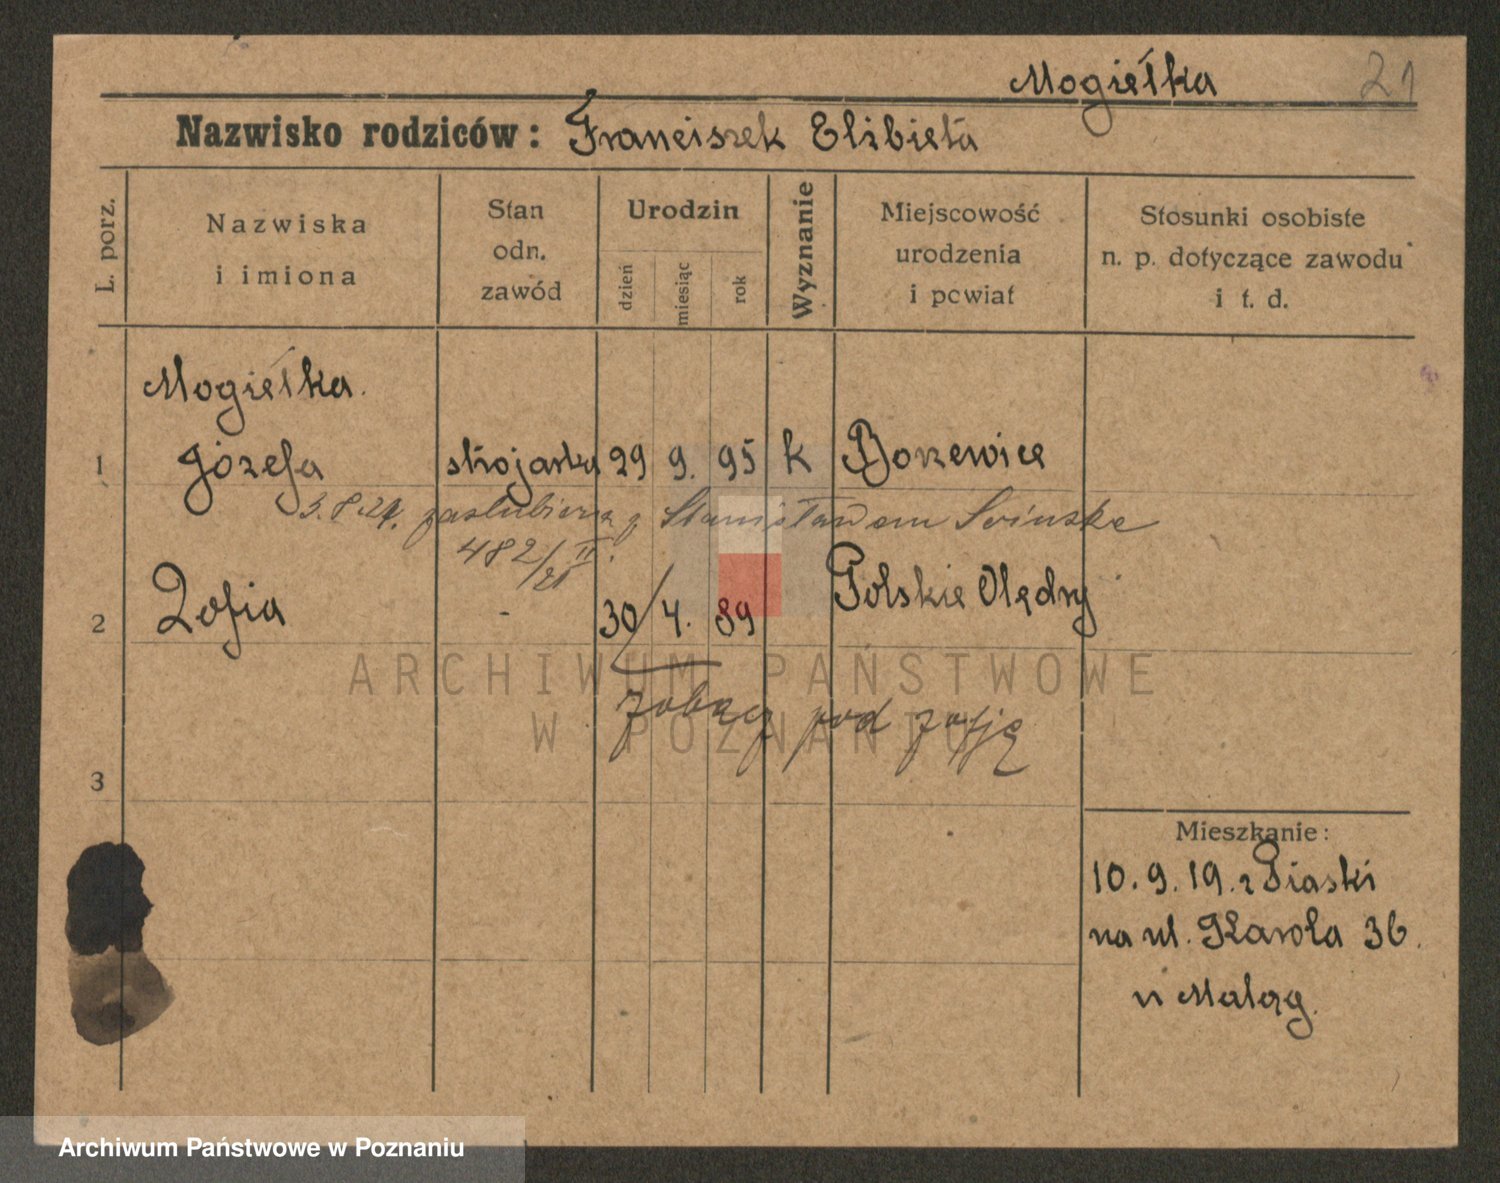 Mogiełka 21
Nazwisko rodziców: Franciszek Elżbieta
L. porz.
Nazwiska i imiona
Stan odn. zawód
Urodzin
dzień miesiąc rok
Wyznanie
Miejscowość urodzenia i powiat
Stosunki osobiste n. p. dotyczące zawodu i t. d.
Mogiełka.
1 Józefa strojarka 29 9. 95 k Borzewice
zaślubiona z Stanisławem
482/II.
21
2 Zofia - 30/4. 89 Polskie Olędry
zobacz pod zofją
3
Mieszkanie:
10.9.19. z Piaski
na ul. Karola 36.
u Maląg.
ARCHIWUM PAŃSTWOWE
W POZNANIU
Archiwum Państwowe w Poznaniu